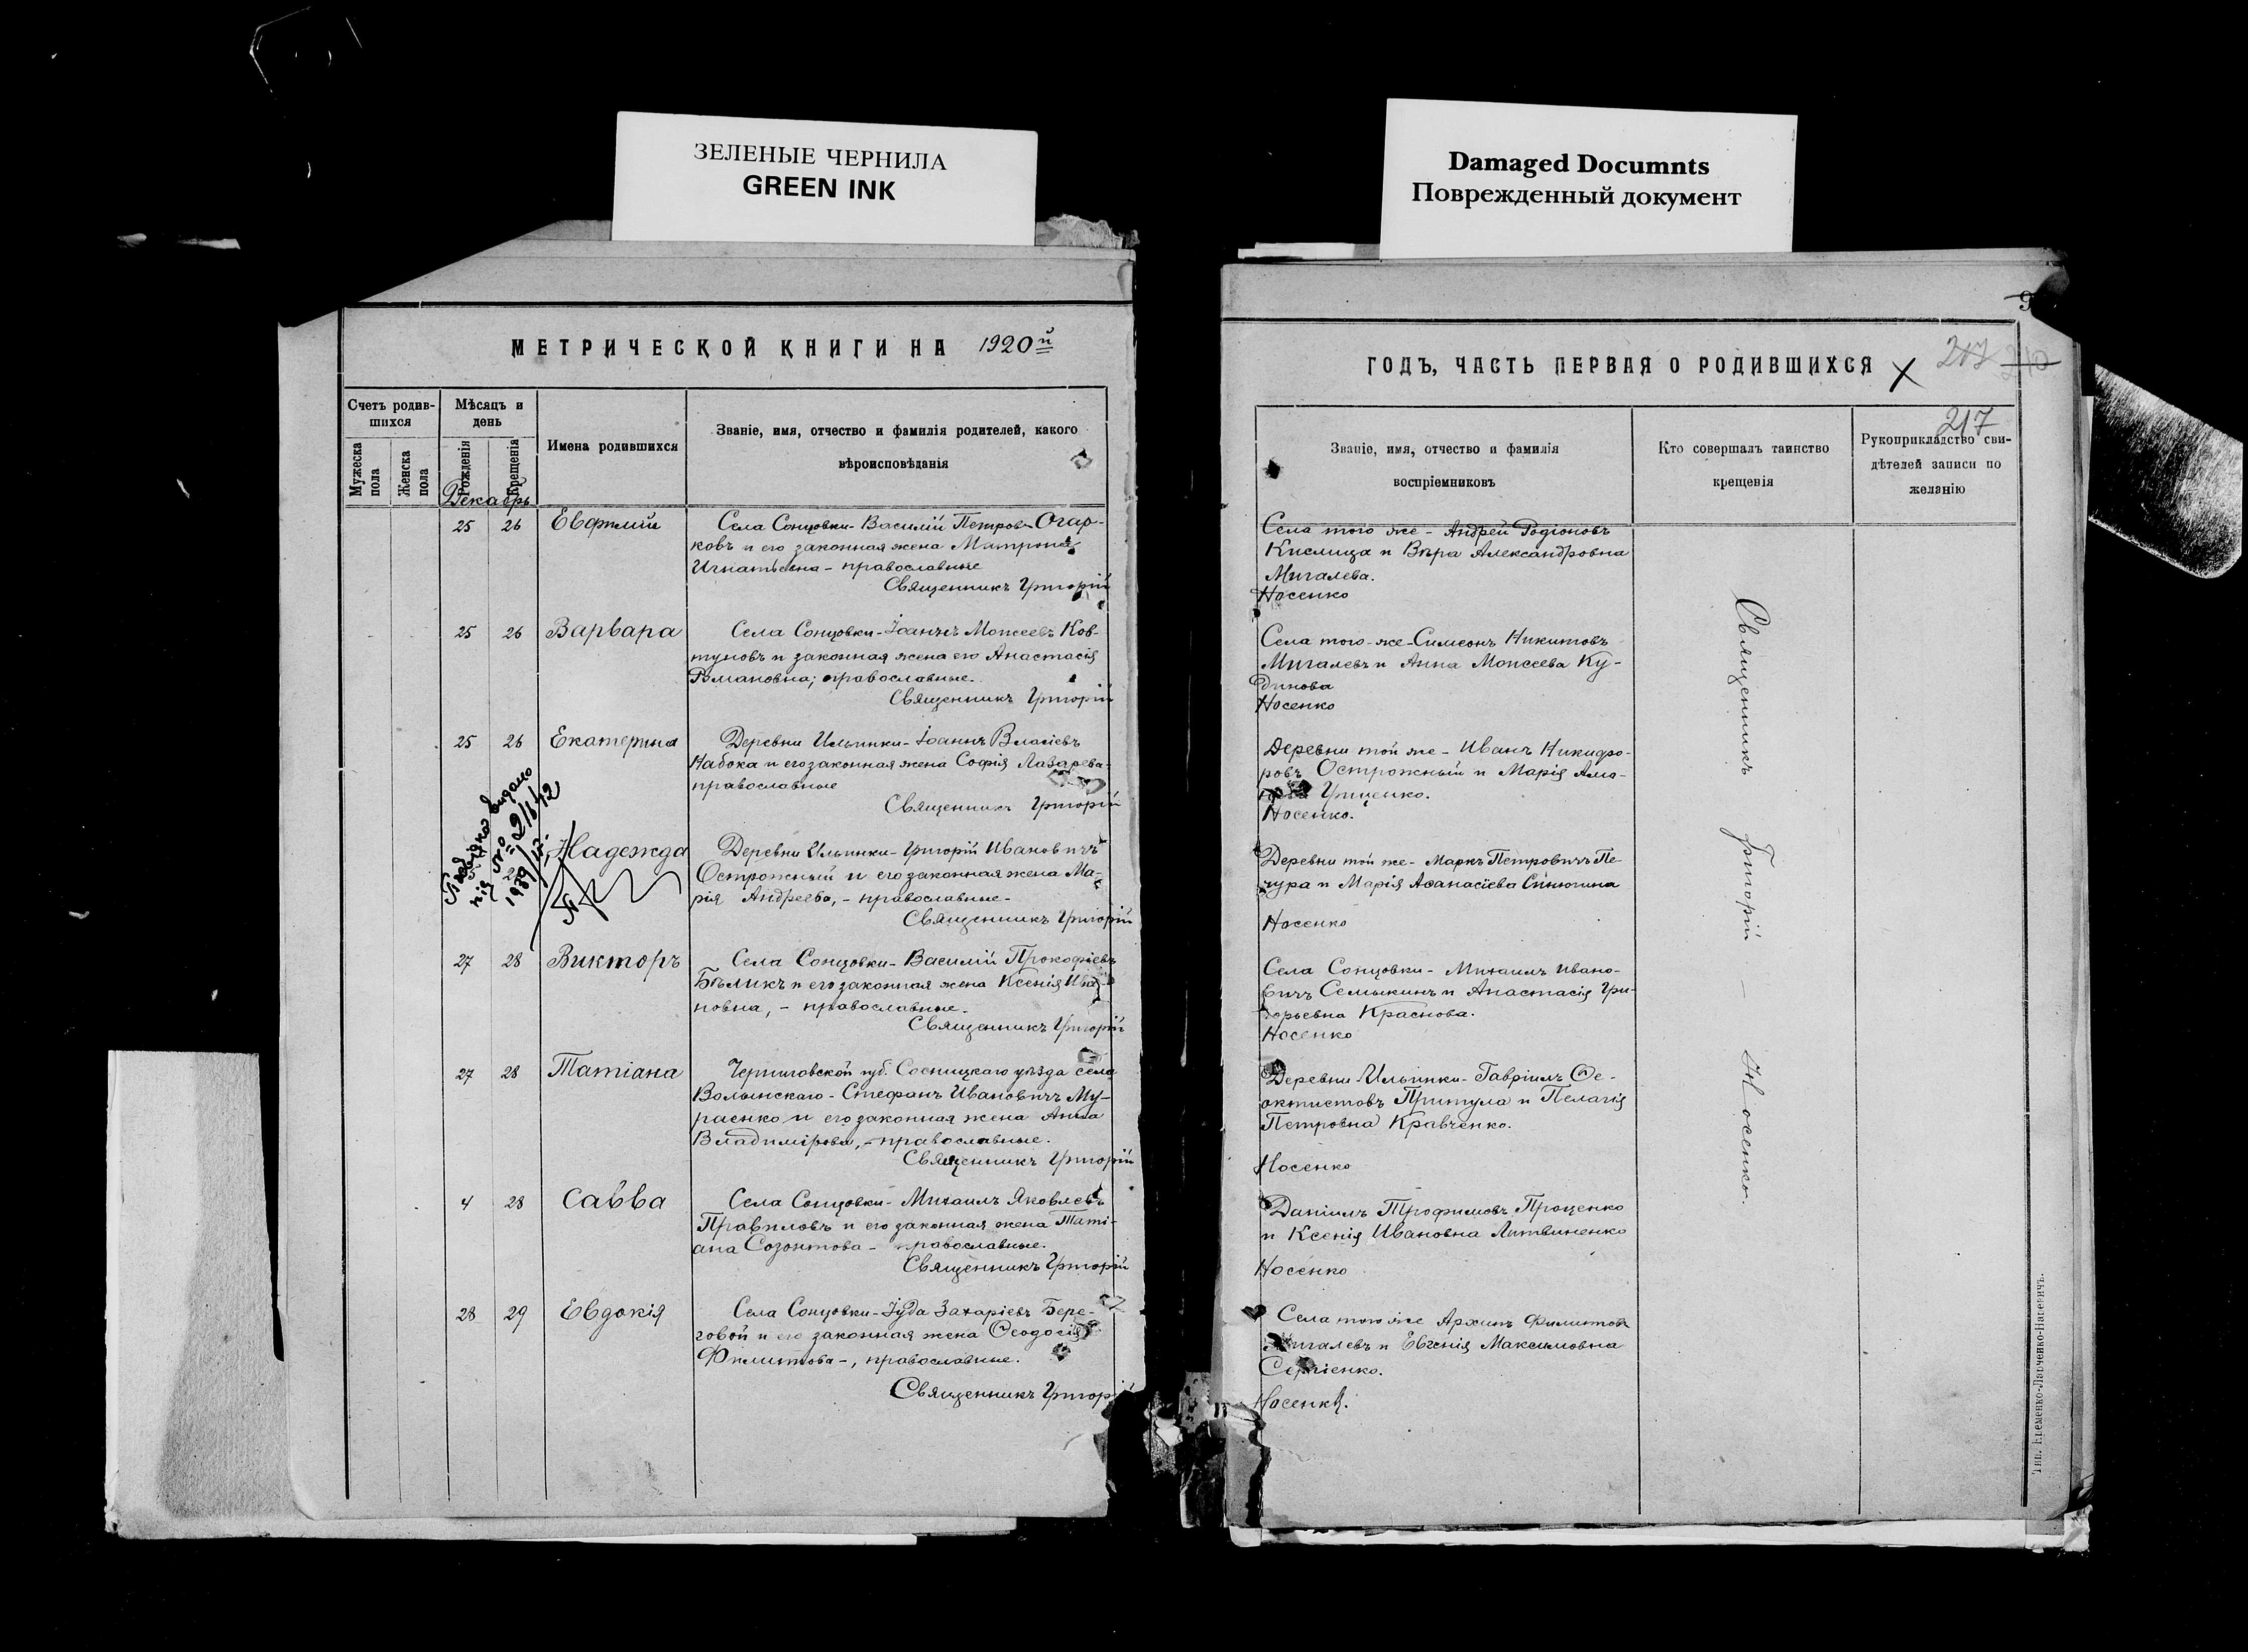 ЗЕЛЕНЫЕ ЧЕРНИЛА
GREEN INK
Damaged Documnts
Поврежденный документ
МЕТРИЧЕСКОЙ КНИГИ НА 1920й
Счетъ родив-
шихся
Мужеска
пола
Женска
пола
Мѣсяцъ и
день
Рожденія
Крещенія
Имена родившихся
Званіе, имя, отчество и фамилія родителей, какого
вѣроисповѣданія
Декабрь
25 26 Евфимій
Села Сонцовки - Василій Петровъ Огар-
ковъ и его законная жена Матрона
Игнатьевна - православные
Священникъ Григорій
25 26 Варвара
Села Сонцовки - Іоаннъ Моисеевъ Ков-
туновъ и законная жена его Анастасія
Романовна; православные.
Священникъ Григорій
25 26 Екатерина
Деревни Ильинки - Іоаннъ Власіевъ
Набока и его законная жена Софія Лазарева -
православные
Священникъ Григорій
видано
1939
Надежда
Деревни Ильинки - Григорій Ивановичъ
Острожный и его законная жена Ма-
рія Андреева, - православные -
Священникъ Григорій
27 28 Викторъ
Села Сонцовки - Василій Прокофіевъ
Бѣликъ и его законная жена Ксенія Ива-
новна, - православные.
Священникъ Григорій
27 28 Татіана
Черниговской губ. Сосницкаго уѣзда села
Волынскаго - Стефанъ Ивановичъ Му-
раенко и его законная жена Анна
Владимірова, - православные.
Священникъ Григорій
4 28 Савва
Села Сонцовки - Михаилъ Яковлевъ
Правиловъ и его законная жена Тати-
ана Созонтова - православные.
Священникъ Григорій
28 29 Евдокія
Села Сонцовки - Іуда Захаріевъ Бере-
говой и его законная жена Ѳеодосія
Филиппова -, православные.
Священникъ Григорій
9
ГОДЪ, ЧАСТЬ ПЕРВАЯ О РОДИВШИХСЯ
217
210
217
Званіе, имя, отчество и фамилія
воспріемниковъ
Кто совершалъ таинство
крещенія
Рукоприкладство сви-
дѣтелей записи по
желанію
Села того же - Андрей Родіоновъ
Кислица и Вѣра Александровна
Мигалева.
Носенко
Села того-же - Симеонъ Никитовъ
Мигалевъ и Анна Моисеева Ку-
динова
Носенко
Деревни той же - Иванъ Никифо-
ровъ Острожный и Марія
Гриценко.
Носенко.
Деревни той же - Маркъ Петровичъ Пе-
чура и Марія Аѳанасіева Синюгина
Носенко
Села Сонцовки - Михаилъ Ивано-
вичъ Семыкинъ и Анастасія Гри-
горьевна Краснова.
Носенко
Деревни Ильинки - Гавріилъ Ѳе-
октистовъ Притула и Пелагія
Петровна Кравченко.
Носенко
Даніилъ Трофимовъ Проценко
и Ксенія Ивановна Литвиненко
Носенко
Села того же Архипъ Филиппов
Мигалевъ и Евгенія Максимовна
Сергіенко.
Носенко.
Священникъ Григорій - Носенко.